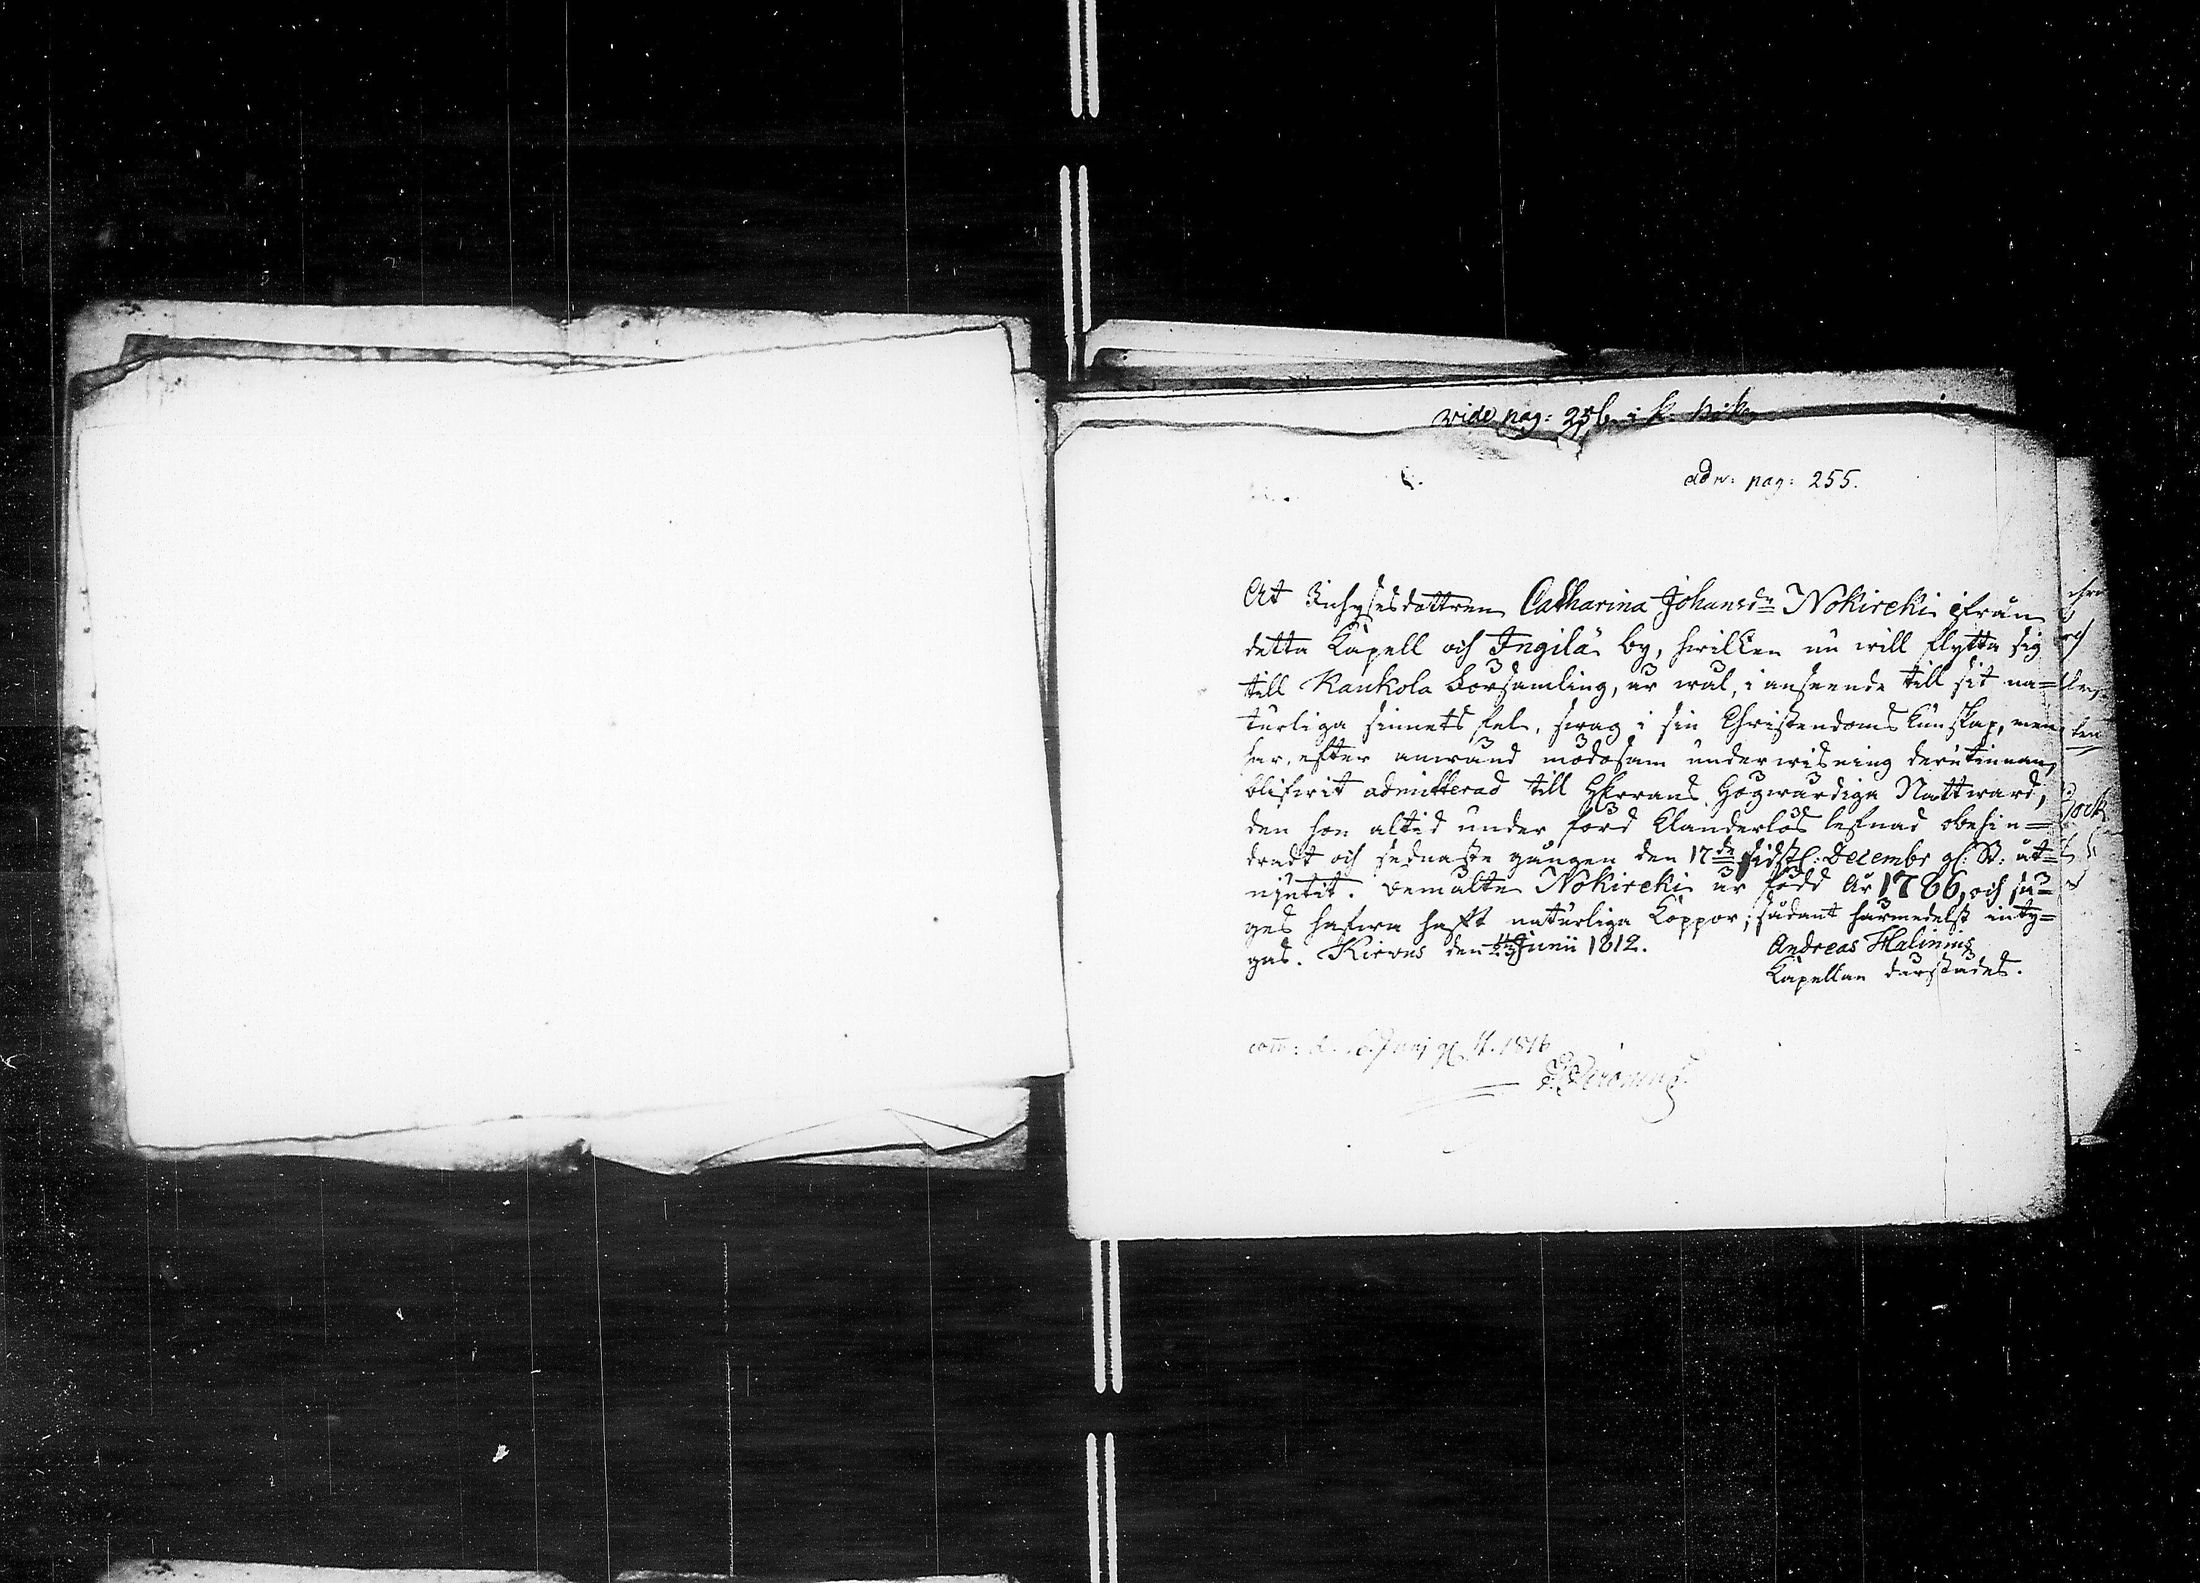 wide pag: 256. i k. boken
adv: pag: 255.
At Inhysesdottren Catharina Johansdr Nokireki ifrån
detta Kapell och Ingilä by, hwilken nu will flytta sig
till Kaukola Församling, är wäl, i anseende till sit na=
turliga sinnets fel, swag i sin Christendoms kunskap, men
har, efter anwänd mödosam underwisning derutinnan,
blifwit admitterad till HErrans Högwärdiga Nattward,
den hon altid under förd klanderlös lefnad obehin=
dradt och sednaste gången den 17de sidstl: Decembr gl: St: åt=
njutit. Bemälte Nokireki är född År 1786, och sä=
ges hafwa haft naturliga Koppor; sådant härmedelst inty=
gas. Kirvus den Junii 1812. Andreas Halinius
Kapellan därstädes.
Junj gl. st. 1816